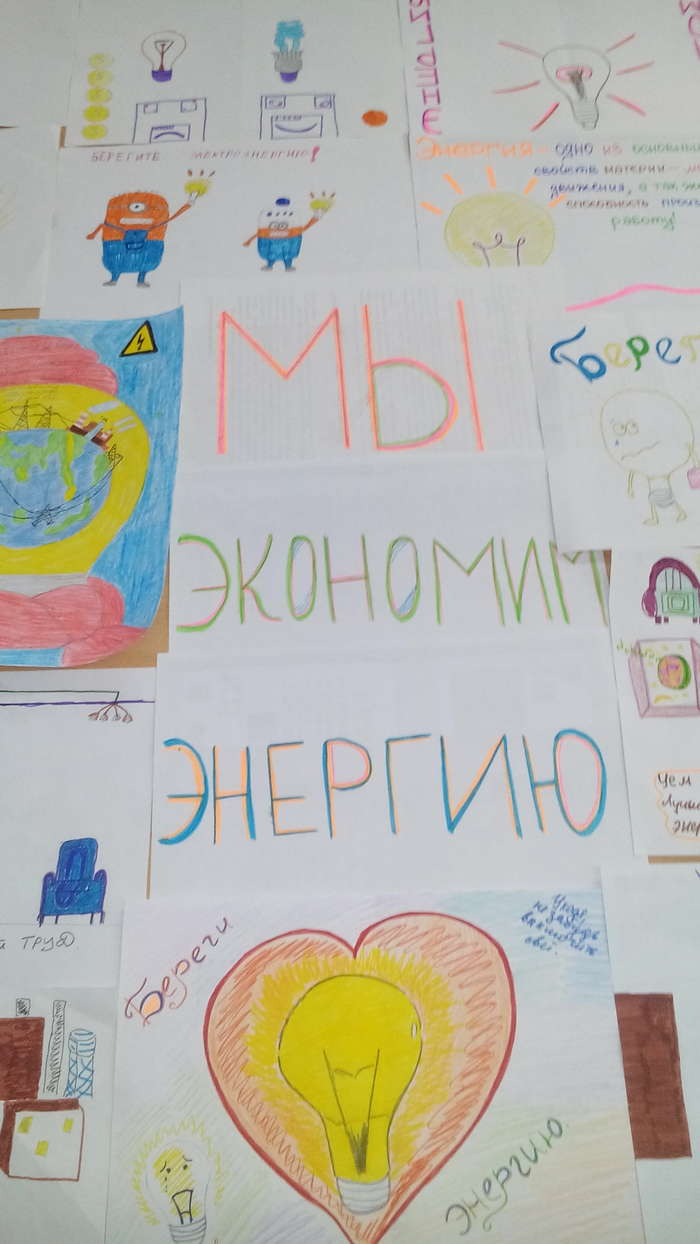 БЕРЕГИТЕ ЭЛЕКТРОЭНЕРГИЮ!
Энергия - одно из основных
свойств материи -
движения, а также
способность произ
работу!
МЫ
ЭКОНОМИМ
ЭНЕРГИЮ
Берег
Чем
Лучше
энер
Й ТРУД
Береги
Уходя,
не забудь
выключить
свет.
Энергию.